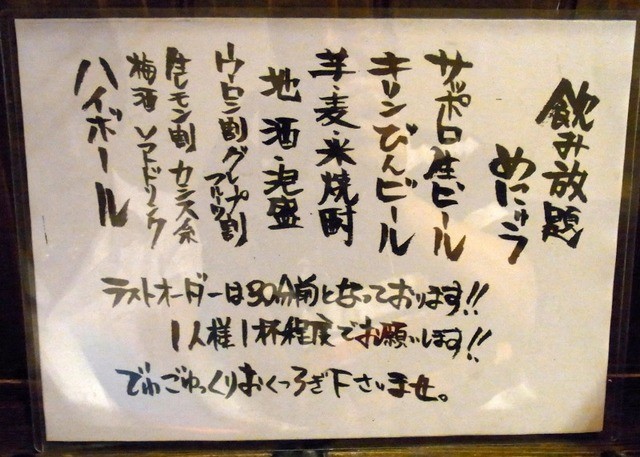 飲み放題
めにゅう
サッポロ生ビール
キリンびんビール
芋・麦・米焼酎
地酒・泡盛
ウーロン割グレープフルーツ割
生レモン割 カシス系
梅酒 ソフトドリンク
ハイボール
ラストオーダーは30分前となっております!!
1人様1杯程度でお願いします!!
でわごゆっくりおくつろぎ下さいませ。